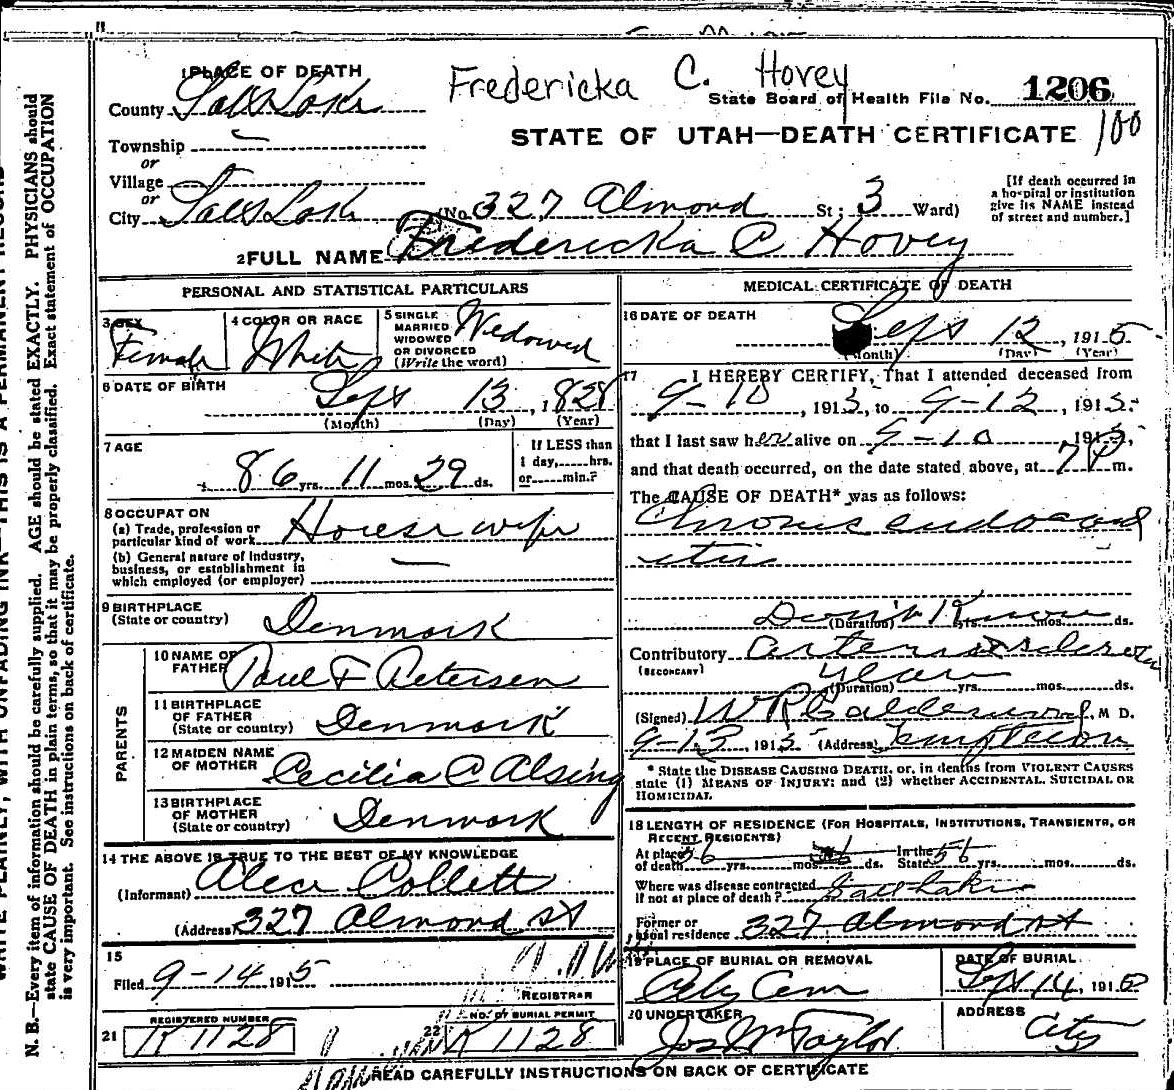 Fredericka C. Hovey
1 PLACE OF DEATH
County Salt Lake
State Board of Health File No. 1206
100
STATE OF UTAH—DEATH CERTIFICATE
Township
or
Village
or
City Salt Lake (No. 327 Almond St; 3 Ward)
[If death occurred in
a hospital or institution
give its NAME instead
of street and number.]
2 FULL NAME Fredericka C Hovey
PERSONAL AND STATISTICAL PARTICULARS
3 SEX Female
4 COLOR OR RACE White
5 SINGLE
MARRIED
WIDOWED
OR DIVORCED
(Write the word)
Widowed
6 DATE OF BIRTH
Sept 13, 1828
(Month) (Day) (Year)
7 AGE
86 yrs. 11 mos. 29 ds.
If LESS than
1 day,......hrs.
or......min.?
8 OCCUPATION
(a) Trade, profession or
particular kind of work Housewife
(b) General nature of industry,
business, or establishment in
which employed (or employer)
9 BIRTHPLACE
(State or country) Denmark
PARENTS
10 NAME OF
FATHER Paul F Petersen
11 BIRTHPLACE
OF FATHER
(State or country) Denmark
12 MAIDEN NAME
OF MOTHER Cecilia C Alsing
13 BIRTHPLACE
OF MOTHER
(State or country) Denmark
14 THE ABOVE IS TRUE TO THE BEST OF MY KNOWLEDGE
(Informant) Alice Collett
(Address) 327 Almond St
15
Filed 9-14 1915
REGISTRAR
21 REGISTERED NUMBER K 1128
22 NO. OF BURIAL PERMIT K 1128
MEDICAL CERTIFICATE OF DEATH
16 DATE OF DEATH
Sept 12, 1915
(Month) (Day) (Year)
17 I HEREBY CERTIFY, That I attended deceased from
9-10, 1915, to 9-12, 1915.
that I last saw her alive on 9-10 1915,
and that death occurred, on the date stated above, at 7 P m.
The CAUSE OF DEATH* was as follows:
Chronic endocard
itis
Don't Know
(Duration) yrs. mos. ds.
Contributory Arterio Sclerosis
(SECONDARY)
Years
(Duration) yrs. mos. ds.
(Signed) W R Calderwood, M D.
9-13, 1915 (Address) Templeton
* State the DISEASE CAUSING DEATH, or, in deaths from VIOLENT CAUSES
state (1) MEANS OF INJURY; and (2) whether ACCIDENTAL, SUICIDAL OR
HOMICIDAL.
18 LENGTH OF RESIDENCE (FOR HOSPITALS, INSTITUTIONS, TRANSIENTS, OR
RECENT RESIDENTS)
At place
of death 56 yrs. mos. ds. In the
State 56 yrs. mos. ds.
Where was disease contracted
If not at place of death? Salt Lake
Former or
usual residence 327 Almond St
19 PLACE OF BURIAL OR REMOVAL
City Cem
DATE OF BURIAL
Sept 14, 191
20 UNDERTAKER
Jos Wm Taylor
ADDRESS
City
READ CAREFULLY INSTRUCTIONS ON BACK OF CERTIFICATE
WRITE PLAINLY, WITH UNFADING INK—THIS IS A PERMANENT RECORD
N. B.—Every item of information should be carefully supplied. AGE should be stated EXACTLY. PHYSICIANS should
state CAUSE OF DEATH in plain terms, so that it may be properly classified. Exact statement of OCCUPATION
is very important. See instructions on back of certificate.